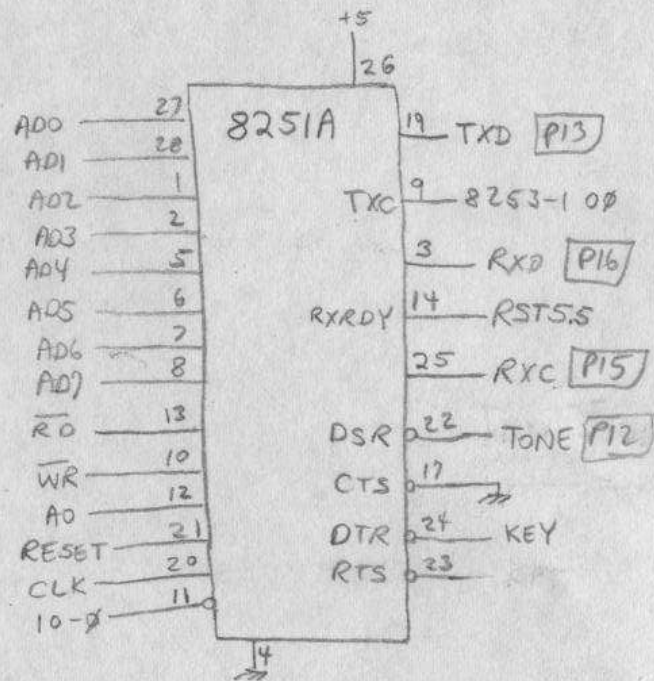 +5
26
8251A
AD0 27
AD1 28
AD2 1
AD3 2
AD4 5
AD5 6
AD6 7
AD7 8
RD 13
WR 10
A0 12
RESET 21
CLK 20
IO-Ø 11
4
19 TXD P13
TXC 9 8253-1 OØ
3 RXD P16
RXRDY 14 RST5.5
25 RXC P15
DSR 22 TONE P12
CTS 17
DTR 24 KEY
RTS 23